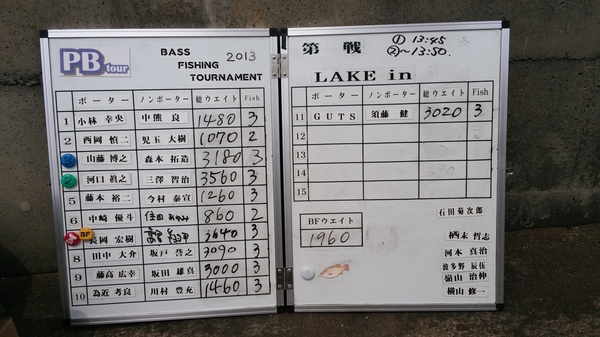 PB tour
BASS FISHING TOURNAMENT 2013
ボーター ノンボーター 総ウエイト Fish
1 小林 幸央 中熊 良 1480 3
2 西岡 慎二 児玉 大樹 1070 2
山藤 博之 森本 拓造 3180 3
河口 眞之 三澤 智治 3560 3
5 藤本 裕二 今村 泰宣 1260 3
6 中崎 優斗 住田 860 2
BF 長岡 宏樹 3640 3
8 田中 大介 坂戸 誉之 3090 3
9 藤高 広幸 坂田 雄真 3000 3
10 為近 考良 川村 豊充 1460 3
第 戦
① 13:45
②~13:50.
LAKE in
ボーター ノンボーター 総ウエイト Fish
11 GUTS 須藤 健 3020 3
12
13
14
15
BFウエイト
1960
石田菊次郎
栖末 哲志
河本 真治
波多野 辰伍
嶺山 治伸
横山 修一